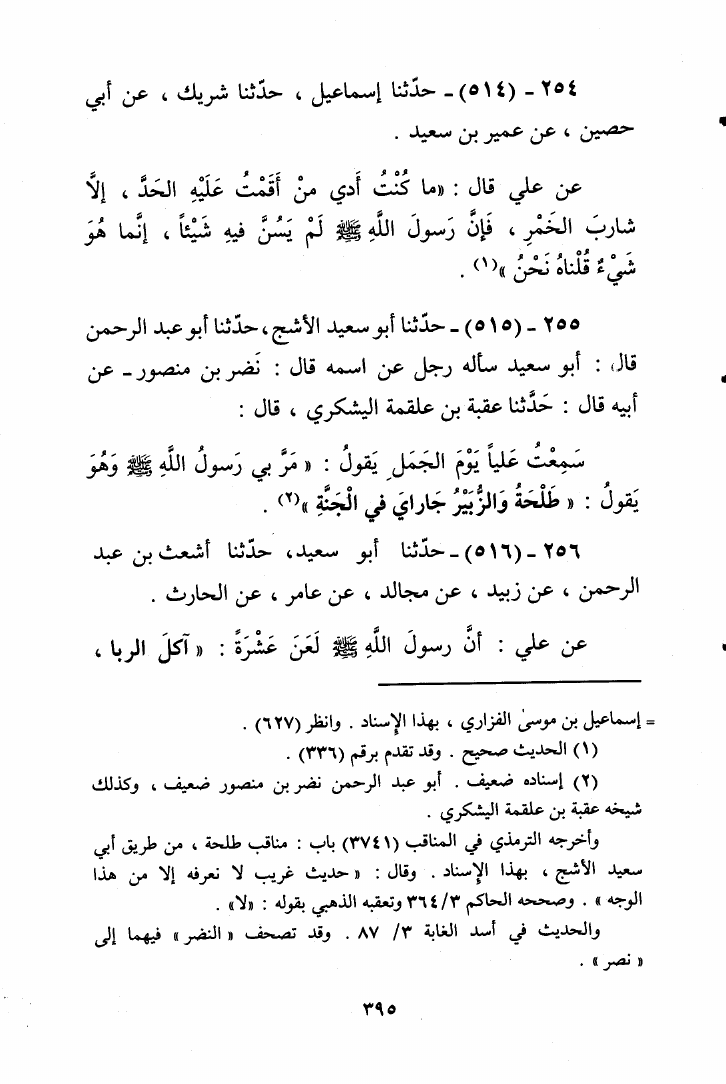 ٢٥٤ - (٥١٤) - حدّثنا إسماعيل ، حدّثنا شريك ، عن أبي
حصين ، عن عمير بن سعيد .
عن علي قال : «ما كُنْتُ أَدي مَنْ أَقَمْتُ عَلَيْهِ الحَدَّ ، إلَّا
شارِبَ الخَمْرِ ، فَإنَّ رَسولَ اللَّهِ ﷺ لَمْ يَسُنَّ فيهِ شَيْئاً ، إنَّما هُوَ
شَيْءٌ قُلْناهُ نَحْنُ »(١) .
٢٥٥ - (٥١٥) - حدّثنا أبو سعيد الأشج، حدّثنا أبو عبد الرحمن
قال : أبو سعيد سأله رجل عن اسمه قال : نَضر بن منصور - عن
أبيه قال : حَدَّثنا عقبة بن علقمة اليشكري ، قال :
سَمِعْتُ عَلياً يَوْمَ الجَمَلِ يَقولُ : « مَرَّ بي رَسولُ اللَّهِ ﷺ وَهُوَ
يَقولُ : « طَلْحَةُ وَالزُّبَيْرُ جَارايَ في الْجَنَّةِ »(٢) .
٢٥٦ - (٥١٦) - حدّثنا أبو سعيد، حدّثنا أشعث بن عبد
الرحمن ، عن زبيد ، عن مجالد ، عن عامر ، عن الحارث .
عن علي : أنَّ رسولَ اللَّهِ ﷺ لَعَنَ عَشْرَةً : « آكلَ الربا ،
= إسماعيل بن موسىٰ الفزاري ، بهذا الإسناد . وانظر (٦٢٧) .
(١) الحديث صحيح . وقد تقدم برقم (٣٣٦) .
(٢) إسناده ضعيف . أبو عبد الرحمن نضر بن منصور ضعيف ، وكذلك
شيخه عقبة بن علقمة اليشكري .
وأخرجه الترمذي في المناقب (٣٧٤١) باب : مناقب طلحة ، من طريق أبي
سعيد الأشج ، بهذا الإسناد . وقال : « حديث غريب لا نعرفه إلا من هذا
الوجه » . وصححه الحاكم ٣٦٤/٣ وتعقبه الذهبي بقوله : «لا» .
والحديث في أسد الغابة ٣/ ٨٧ . وقد تصحف « النضر » فيهما إلى
« نصر » .
٣٩٥